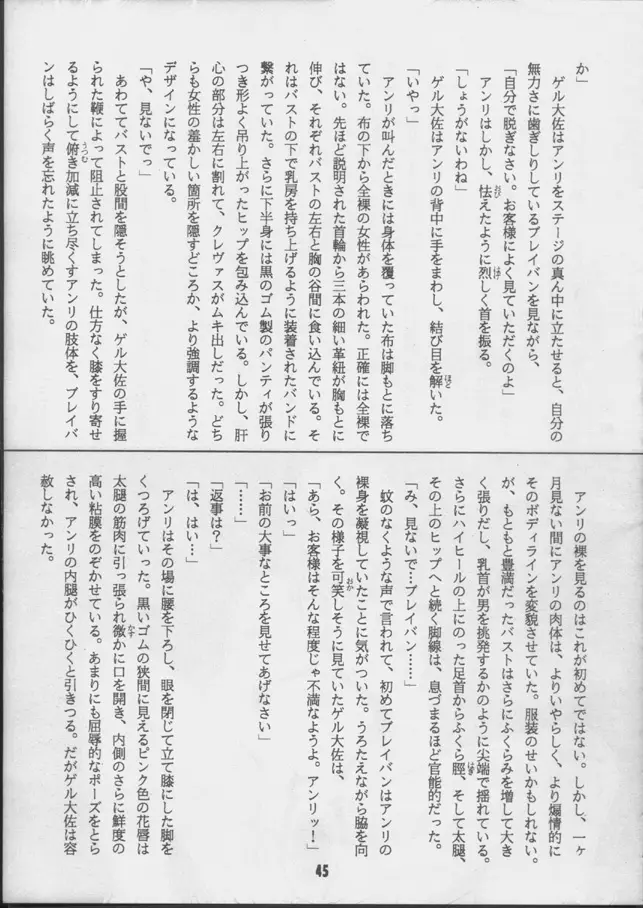 か」
　ゲル大佐はアンリをステージの真ん中に立たせると、自分の
無力さに歯ぎしりしているブレイバンを見ながら、
「自分で脱ぎなさい。お客様によく見ていただくのよ」
　アンリはしかし、怯えたように烈しく首を振る。
「しょうがないわね」
　ゲル大佐はアンリの背中に手をまわし、結び目を解いた。
「いやっ」
　アンリが叫んだときには身体を覆っていた布は脚もとに落ち
ていた。布の下から全裸の女性があらわれた。正確には全裸で
はない。先ほど説明された首輪から三本の細い革紐が胸もとに
伸び、それぞれバストの左右と胸の谷間に食い込んでいる。そ
れはバストの下で乳房を持ち上げるように装着されたバンドに
繋がっていた。さらに下半身には黒のゴム製のパンティが張り
つき形よく吊り上がったヒップを包み込んでいる。しかし、肝
心の部分は左右に割れて、クレヴァスがムキ出しだった。どち
らも女性の羞かしい箇所を隠すどころか、より強調するような
デザインになっている。
「や、見ないでっ」
　あわててバストと股間を隠そうとしたが、ゲル大佐の手に握
られた鞭によって阻止されてしまった。仕方なく膝をすり寄せ
るようにして俯き加減に立ち尽くすアンリの肢体を、ブレイバ
ンはしばらく声を忘れたように眺めていた。
　アンリの裸を見るのはこれが初めてではない。しかし、一ヶ
月見ない間にアンリの肉体は、よりいやらしく、より煽情的に
そのボディラインを変貌させていた。服装のせいかもしれない。
が、もともと豊満だったバストはさらにふくらみを増して大き
く張りだし、乳首が男を挑発するかのように尖端で揺れている。
さらにハイヒールの上にのった足首からふくら脛、そして太腿、
その上のヒップへと続く脚線は、息づまるほど官能的だった。
「み、見ないで…ブレイバン……」
　蚊のなくような声で言われて、初めてブレイバンはアンリの
裸身を凝視していたことに気がついた。うろたえながら脇を向
く。その様子を可笑しそうに見ていたゲル大佐は、
「あら、お客様はそんな程度じゃ不満なようよ。アンリッ！」
「はいっ」
「お前の大事なところを見せてあげなさい」
「……」
「返事は？」
「は、はい…」
　アンリはその場に腰を下ろし、眼を閉じて立て膝にした脚を
くつろげていった。黒いゴムの狭間に見えるピンク色の花唇は
太腿の筋肉に引っ張られ微かに口を開き、内側のさらに鮮度の
高い粘膜をのぞかせている。あまりにも屈辱的なポーズをとら
され、アンリの内腿がひくひくと引きつる。だがゲル大佐は容
赦しなかった。
45